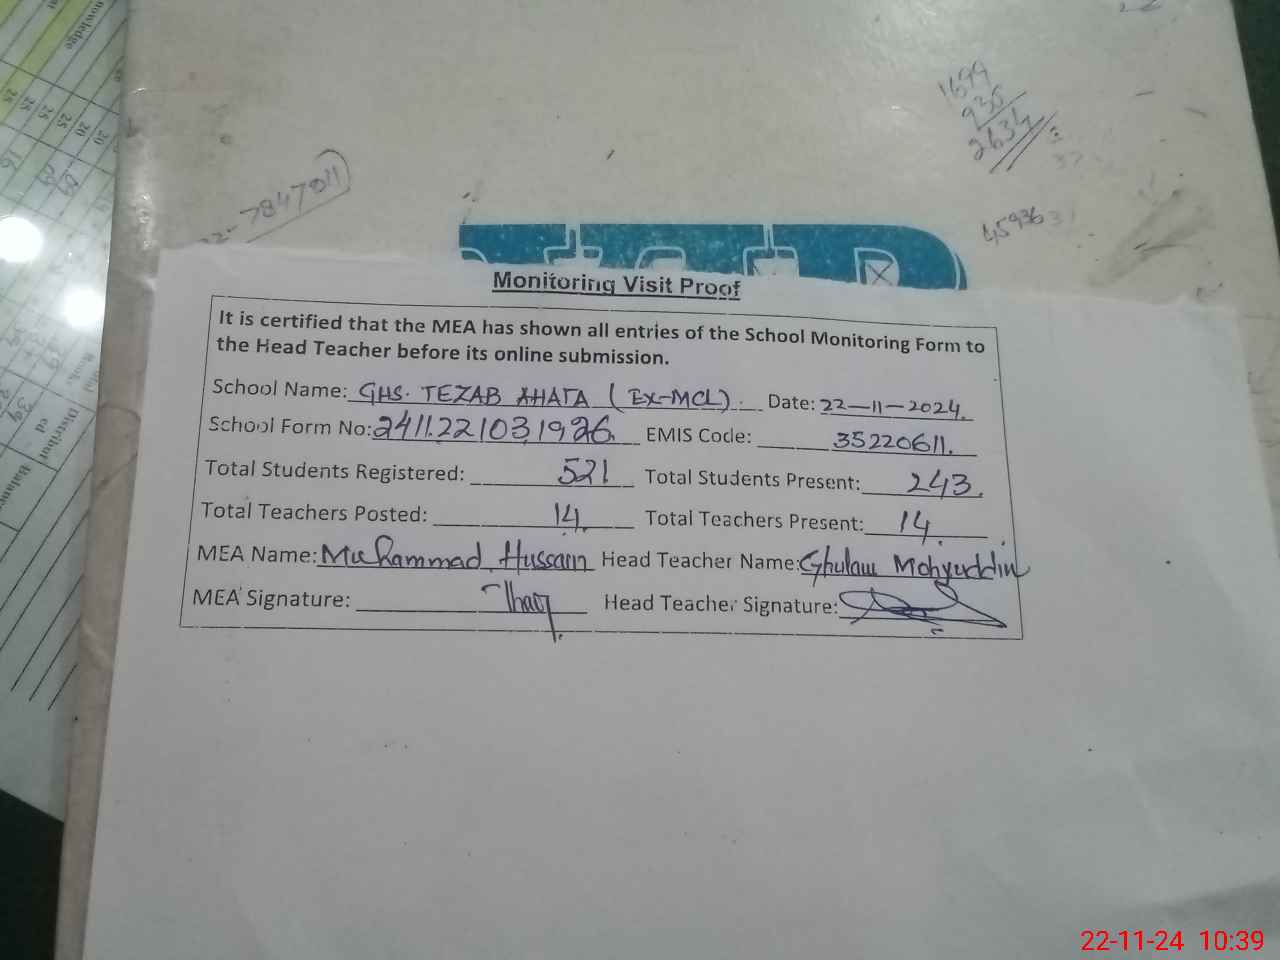 1699
936
2634
7847011
45936
Monitoring Visit Proof
It is certified that the MEA has shown all entries of the School Monitoring Form to
the Head Teacher before its online submission.
School Name: GHS. TEZAB AHATA (EX-MCL). Date: 22-11-2024.
School Form No: 2411.221031926. EMIS Code: 35220611.
Total Students Registered: 521 Total Students Present: 243.
Total Teachers Posted: 14. Total Teachers Present: 14.
MEA Name: Muhammad Hussain Head Teacher Name: Ghulam Mohyuddin
MEA Signature: Head Teacher Signature:
22-11-24 10:39